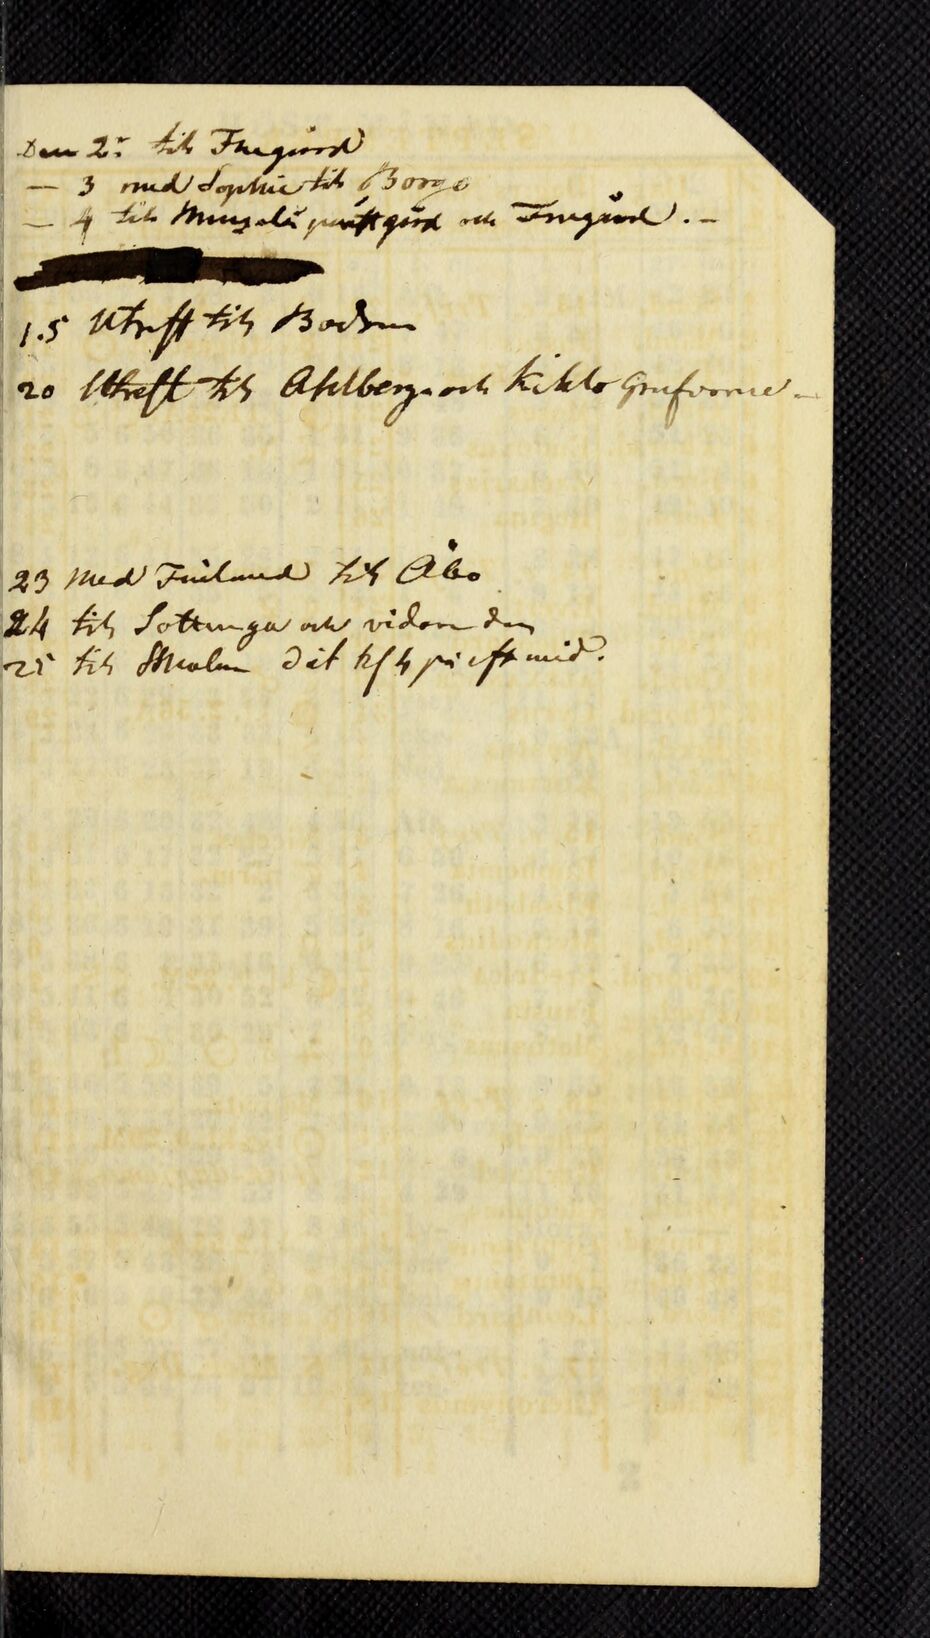 Den 2: till Frugård
— 3 med Sophie till Borgo
— 4 till Mensalä prästgård och Frugård. —
15 Utreste till Bodom
20 Utreste till Ahlberg och Kihlo Grufvorne —
23 Med Finland till Åbo
24 till Sottunga och vidare den
25 till Stholm dit kl 4 på eftmid.